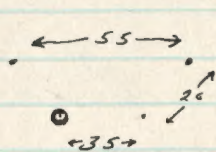 55
26
35